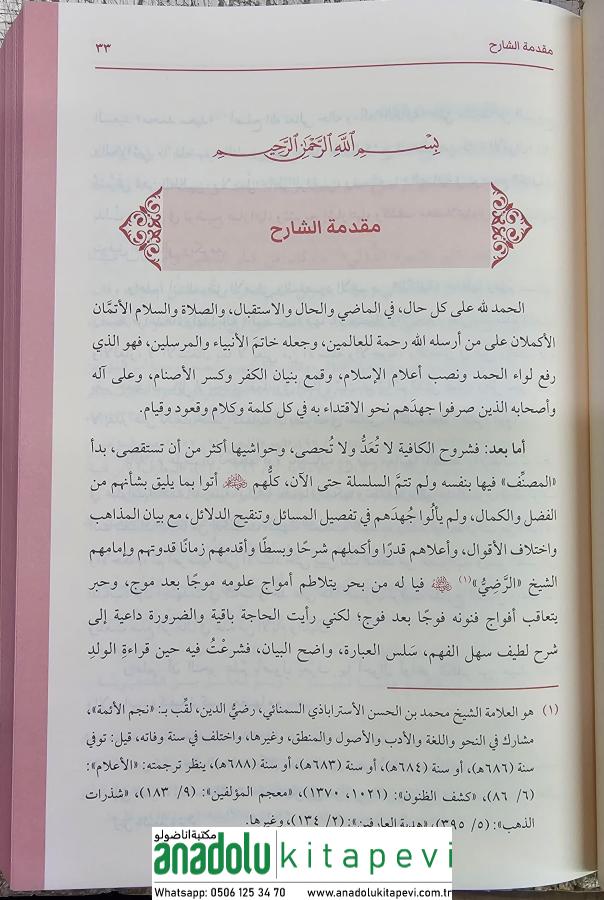 مقدمة الشارح ٣٣
بِسْمِ اللَّهِ الرَّحْمَٰنِ الرَّحِيمِ
مقدمة الشارح
الحمد لله على كل حال، في الماضي والحال والاستقبال، والصلاة والسلام الأتمَّان
الأكملان على من أرسله الله رحمة للعالمين، وجعله خاتمَ الأنبياء والمرسلين، فهو الذي
رفع لواء الحمد ونصب أعلام الإسلام، وقمع بنيان الكفر وكسر الأصنام، وعلى آله
وأصحابه الذين صرفوا جهدَهم نحو الاقتداء به في كل كلمة وكلام وقعود وقيام.
أما بعد: فشروح الكافية لا تُعَدُّ ولا تُحصى، وحواشيها أكثر من أن تستقصى، بدأ
«المصنِّف» فيها بنفسه ولم تتمَّ السلسلة حتى الآن، كلُّهم أتوا بما يليق بشأنهم من
الفضل والكمال، ولم يألُوا جُهدَهم في تفصيل المسائل وتنقيح الدلائل، مع بيان المذاهب
واختلاف الأقوال، وأعلاهم قدرًا وأكملهم شرحًا وبسطًا وأقدمهم زمانًا قدوتهم وإمامهم
الشيخ «الرَّضِيُّ»(١) فيا له من بحر يتلاطم أمواج علومه موجًا بعد موج، وحبر
يتعاقب أفواج فنونه فوجًا بعد فوج؛ لكني رأيت الحاجة باقية والضرورة داعية إلى
شرح لطيف سهل الفهم، سَلس العبارة، واضح البيان، فشرعْتُ فيه حين قراءةِ الولدِ
(١) هو العلامة الشيخ محمد بن الحسن الأستراباذي السمنائي، رضيُّ الدين، لقِّب بـ: «نجم الأئمة»،
مشارك في النحو واللغة والأدب والأصول والمنطق، وغيرها، واختلف في سنة وفاته، قيل: توفي
سنة (٦٨٦هـ)، أو سنة (٦٨٤هـ)، أو سنة (٦٨٣هـ)، أو سنة (٦٨٨هـ)، ينظر ترجمته: «الأعلام»:
(٦/ ٨٦)، «كشف الظنون»: (١٠٢١، ١٣٧٠)، «معجم المؤلفين»: (٩/ ١٨٣)، «شذرات
الذهب»: (٥/ ٣٩٥)، «هدية العارفين»: (٢/ ١٣٤)، وغيرها.
مكتبة اناضولو
anadolu kitapevi
Whatsapp: 0506 125 34 70 www.anadolukitapevi.com.tr